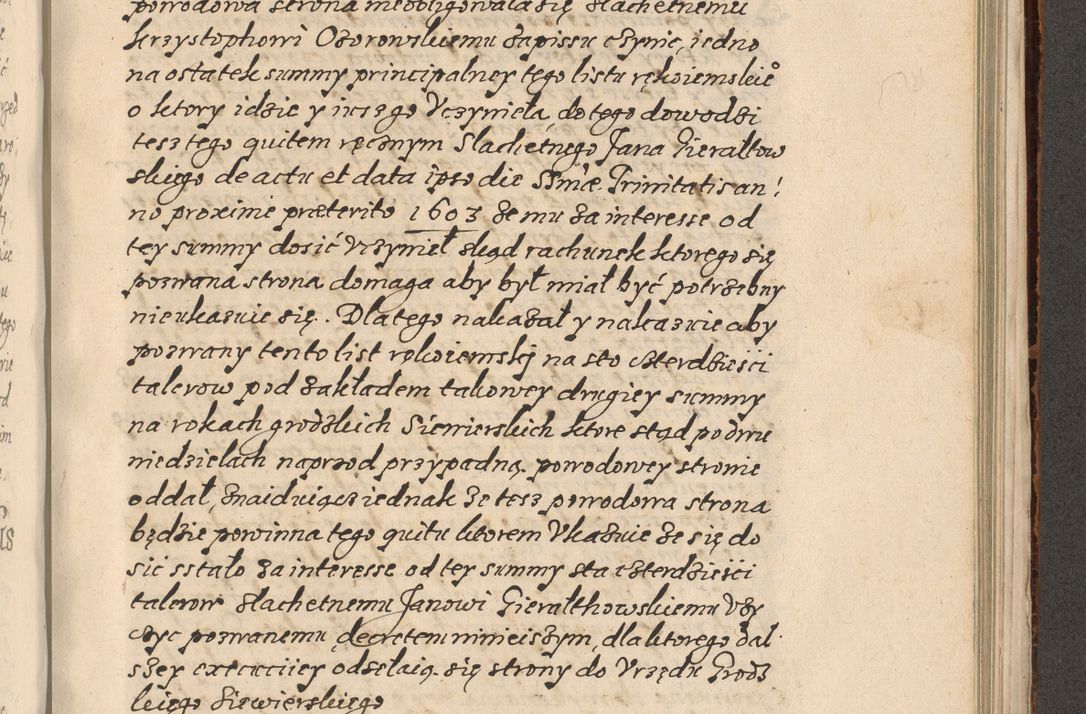 powodowa strona nieobligowala się Slachetnemu
krzystophowi Ozorowskiemu zapissu czynic, iedno
na ostatek summy principalney tego listu rękoiemskieo
o ktory idzie y inszego Vczyniela, do tego dowodzi
tesz tego quitem ręcznym Slachetnego Jana Gieraltow
skiego de actu et data ipso die SSmæ Trinitatis an
no proxime præterito 1603 że mu za interesse od
tey summy dosić Vczynieł skąd rachunek ktorego się
pozwana strona domaga aby był miał być potrzebny
nieukazuie się. Dlatego nakazał y nakazuie aby
pozwany tento list rękoiemskj na sto czterdzieści
talerow pod zakładem takowey drugiey summy
na rokach grodzkich Siewierskich ktore stąd po dwu
niedzielach naprzod przypadną. powodowey stronie
oddał, znaiduiącz iednak że tesz powodowa strona
będzie powinna tego quitu ktorem Vkazuie że się do
sić sstało za interesse od tey summy sta czterdzieści
talerow Slachetnemu Janowi Gieralthowskiemu Vży
czyc pozwanemu, decretem ninieiszym, dla ktorego dal
szey executiiey odselaią się strony do Vrzędu Grodz
kiego Siewierskiego